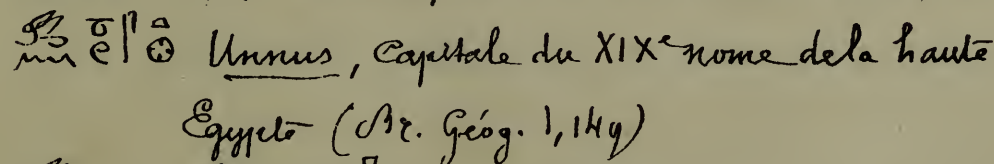 Unnus, Capitale du XIXe nome de la haute
Egypte (Br. Géog. 1, 149)